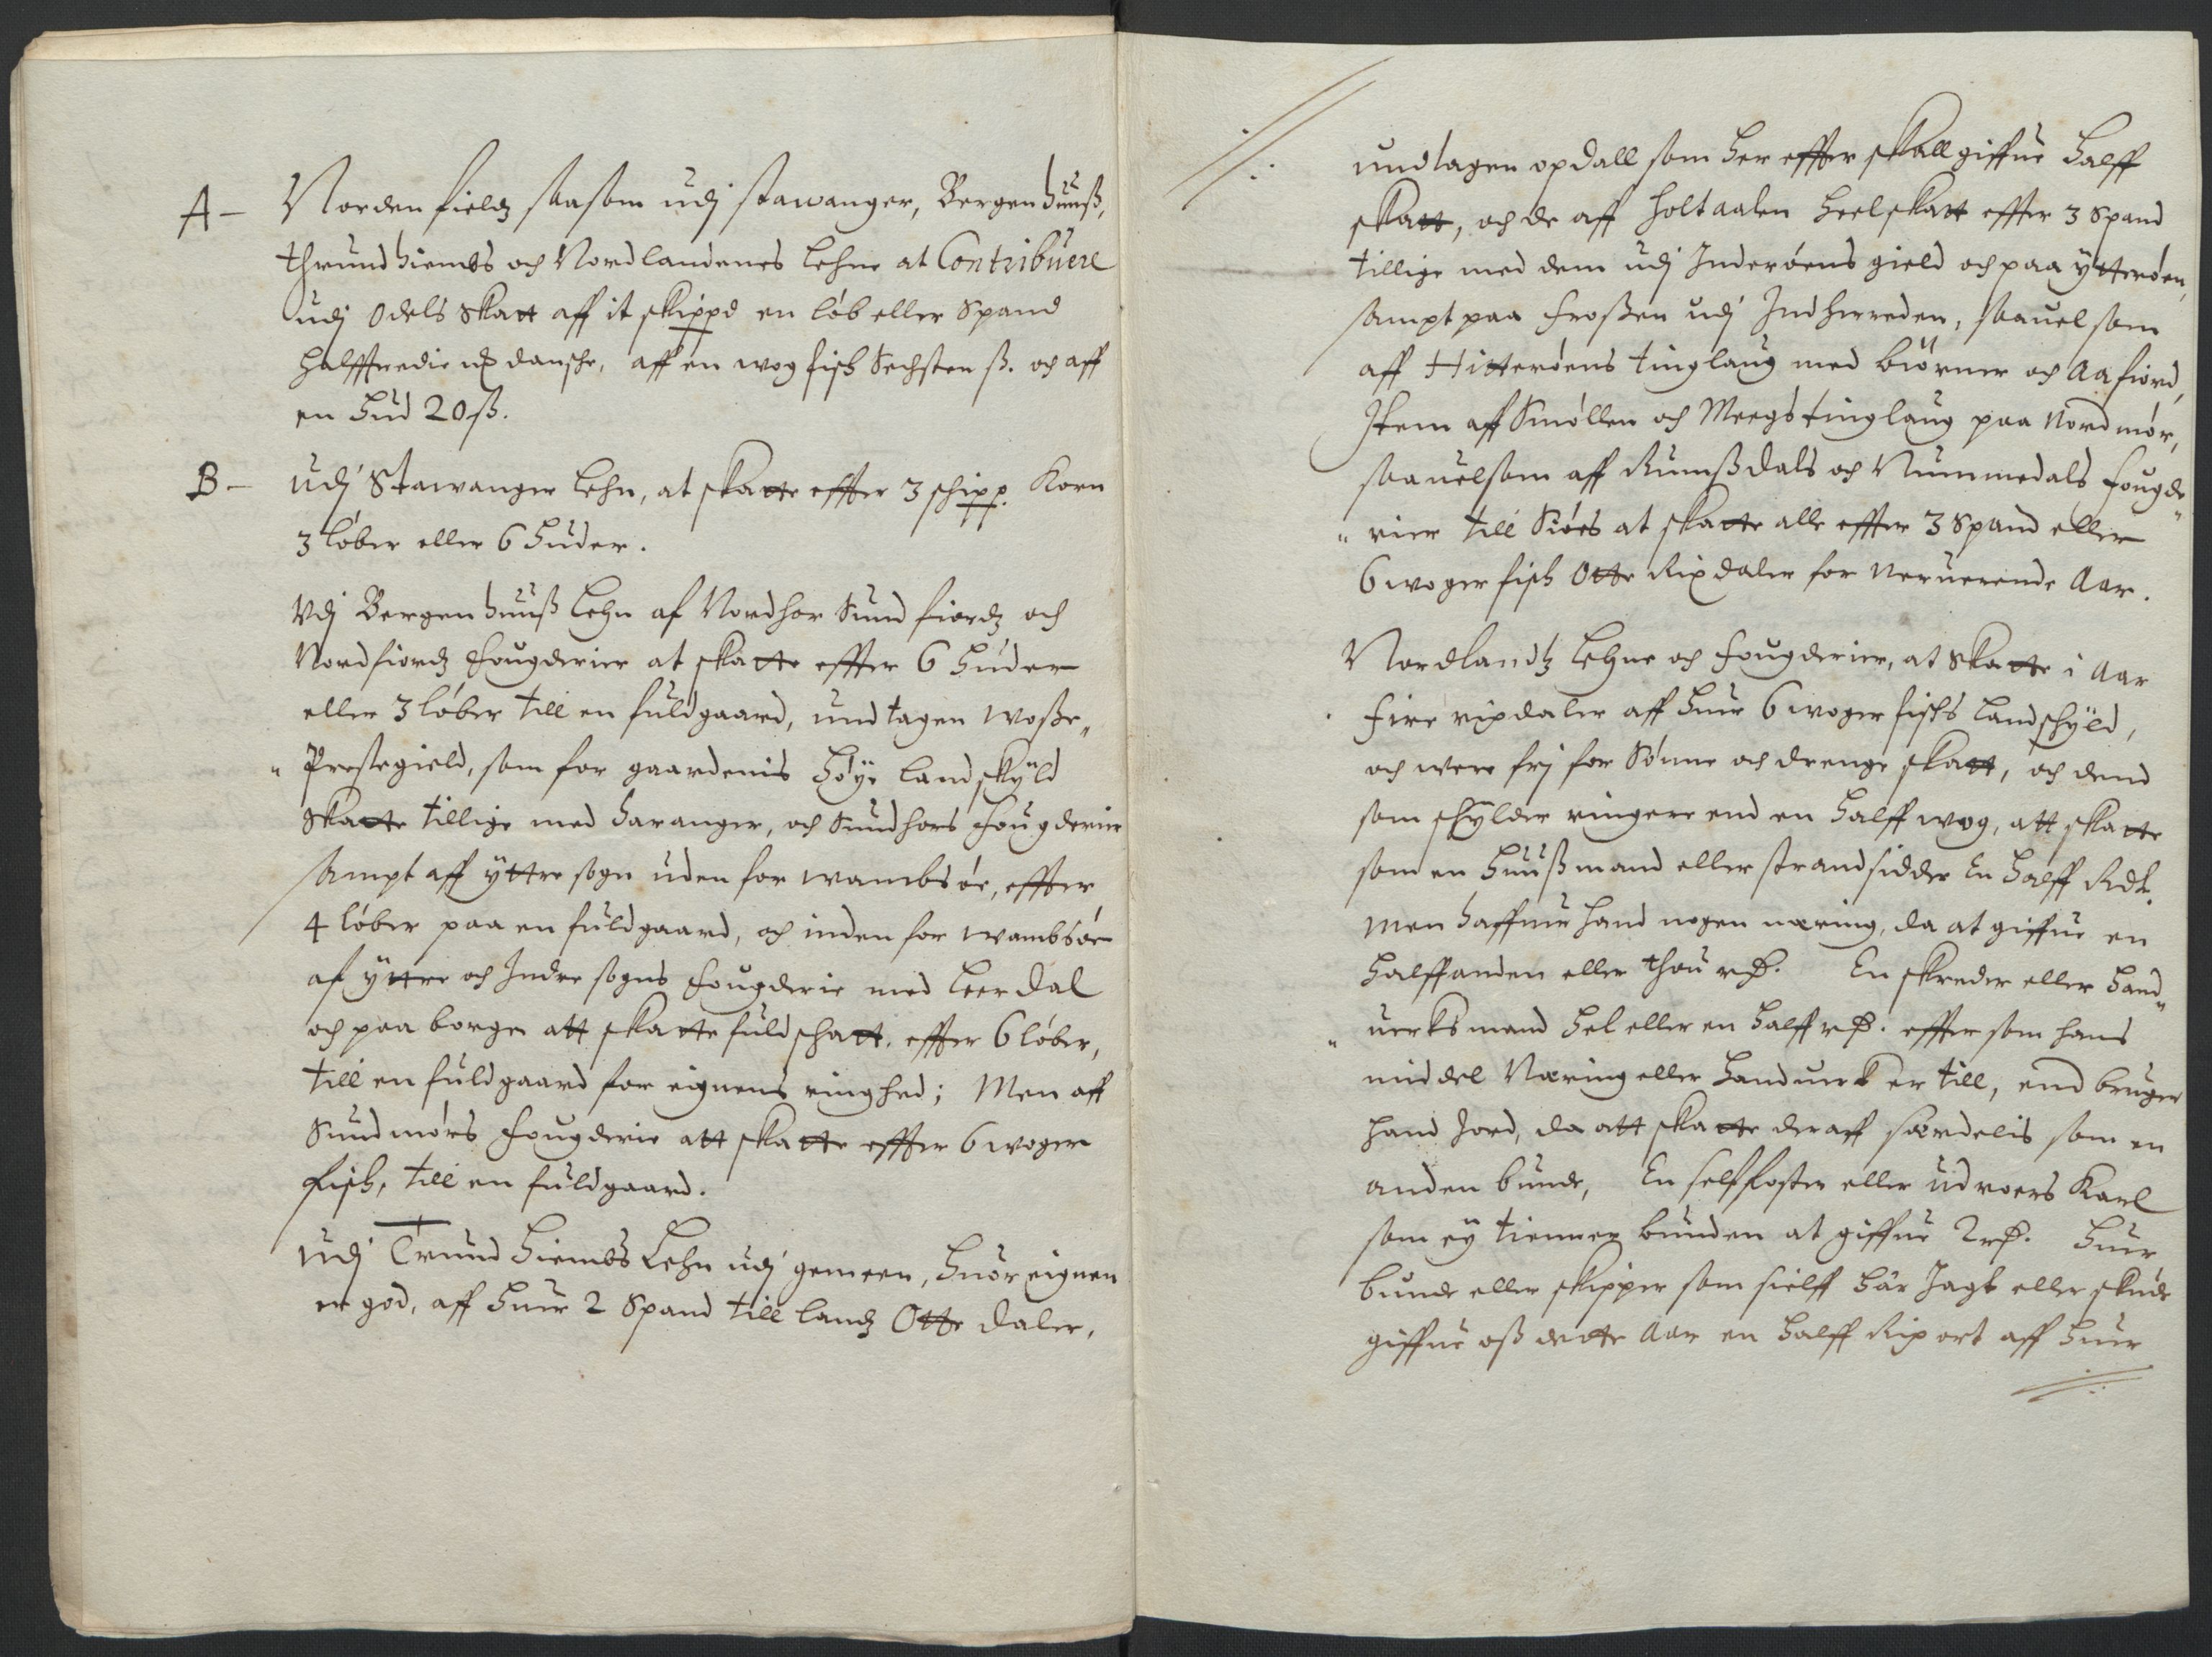 A – Norden fieldz saasom udj stawanger, Bergenhuuß,
thrundhiembs och Nordlandenes Lehne at Contribuere
udj Odels Skatt aff it skippd en løb eller Spand
halfftredie rdr dansche, aff en wog fisk Sechsten ß. och aff
en Hud 20 ß.
B – Udj Stawanger Lehn, at skatte effter 3 schipp. Korn
3 løber eller 6 Huder.
Vdj Bergenhuuß Lehn af Nordhor Sundfiordz och
Nordfiordz fougderier at skatte effter 6 Huder
eller 3 løber till en fuldgaard, undtagen Woße„
„ Prestegield, som for gaardenis Høye landskyld
Skatte tillige med Haranger, och Sundhors fougderier
sampt aff yttre sogn uden for wambsøe, effter
4 løber paa en fuldgaard, och inden for wambsøe
af yttre och Indre sogns fougderie med Leerdal
och paa borge att skatte fuld schatt. effter 6 løber,
till en fuldgaard for eignens ringhed; Men aff
Sundmørs fougderie att skatte effter 6 woger
fisk, till en fuldgaard.
Udj Trundhiembs Lehn udj gemeen, Huor eignen
er god, aff Huer 2 Spand till landz Otte daler,
undtagen opdall som her effter skall giffue halff
skatt, och de aff Holtaalen heel skatt effter 3 Spand
tillige med dem udj Inderøens gield och paa ytterøen,
sampt paa Froßen udj Indherreden, saauelsom
aff Hitterøens tinglaug med biørnør och Aafiord,
Item aff Smøllen och Meegs tinglaug paa Nordmør,
saauelsom aff Rumßdals och Nummedals fougde„
„ rier till Siøes at skatte alle effter 3 Spand eller
6 woger fisk Otte Rixdaler for neruerende Aar.
Nordlandz Lehne och fougderier, at Skatte i Aar
fire rixdaler aff huer 6 woger fischs Landschyld,
och were frj for Sønne och drenge skatt, och dend
som schylder ringere end en halff wog, att skatte
som en Huußmand eller strandsidder En halff Rdr.
men haffuer hand nogen næring, da at giffue en
halffanden eller thou rdr. En skreder eller Hand„
„ uerksmand Hel eller en halff rdr. effter som hans
middel Næring eller Handuerk er till, end bruger
hand Jord, da att skatte deraff særdelis som en
anden bunde, En selffoster eller udroers Karl
som ey tienner bunden at giffue 2 rdr. Huer
bunde eller skipper som sielff hår Jagt eller skude
giffue oß dette Aar en halff Rix ort aff Huer